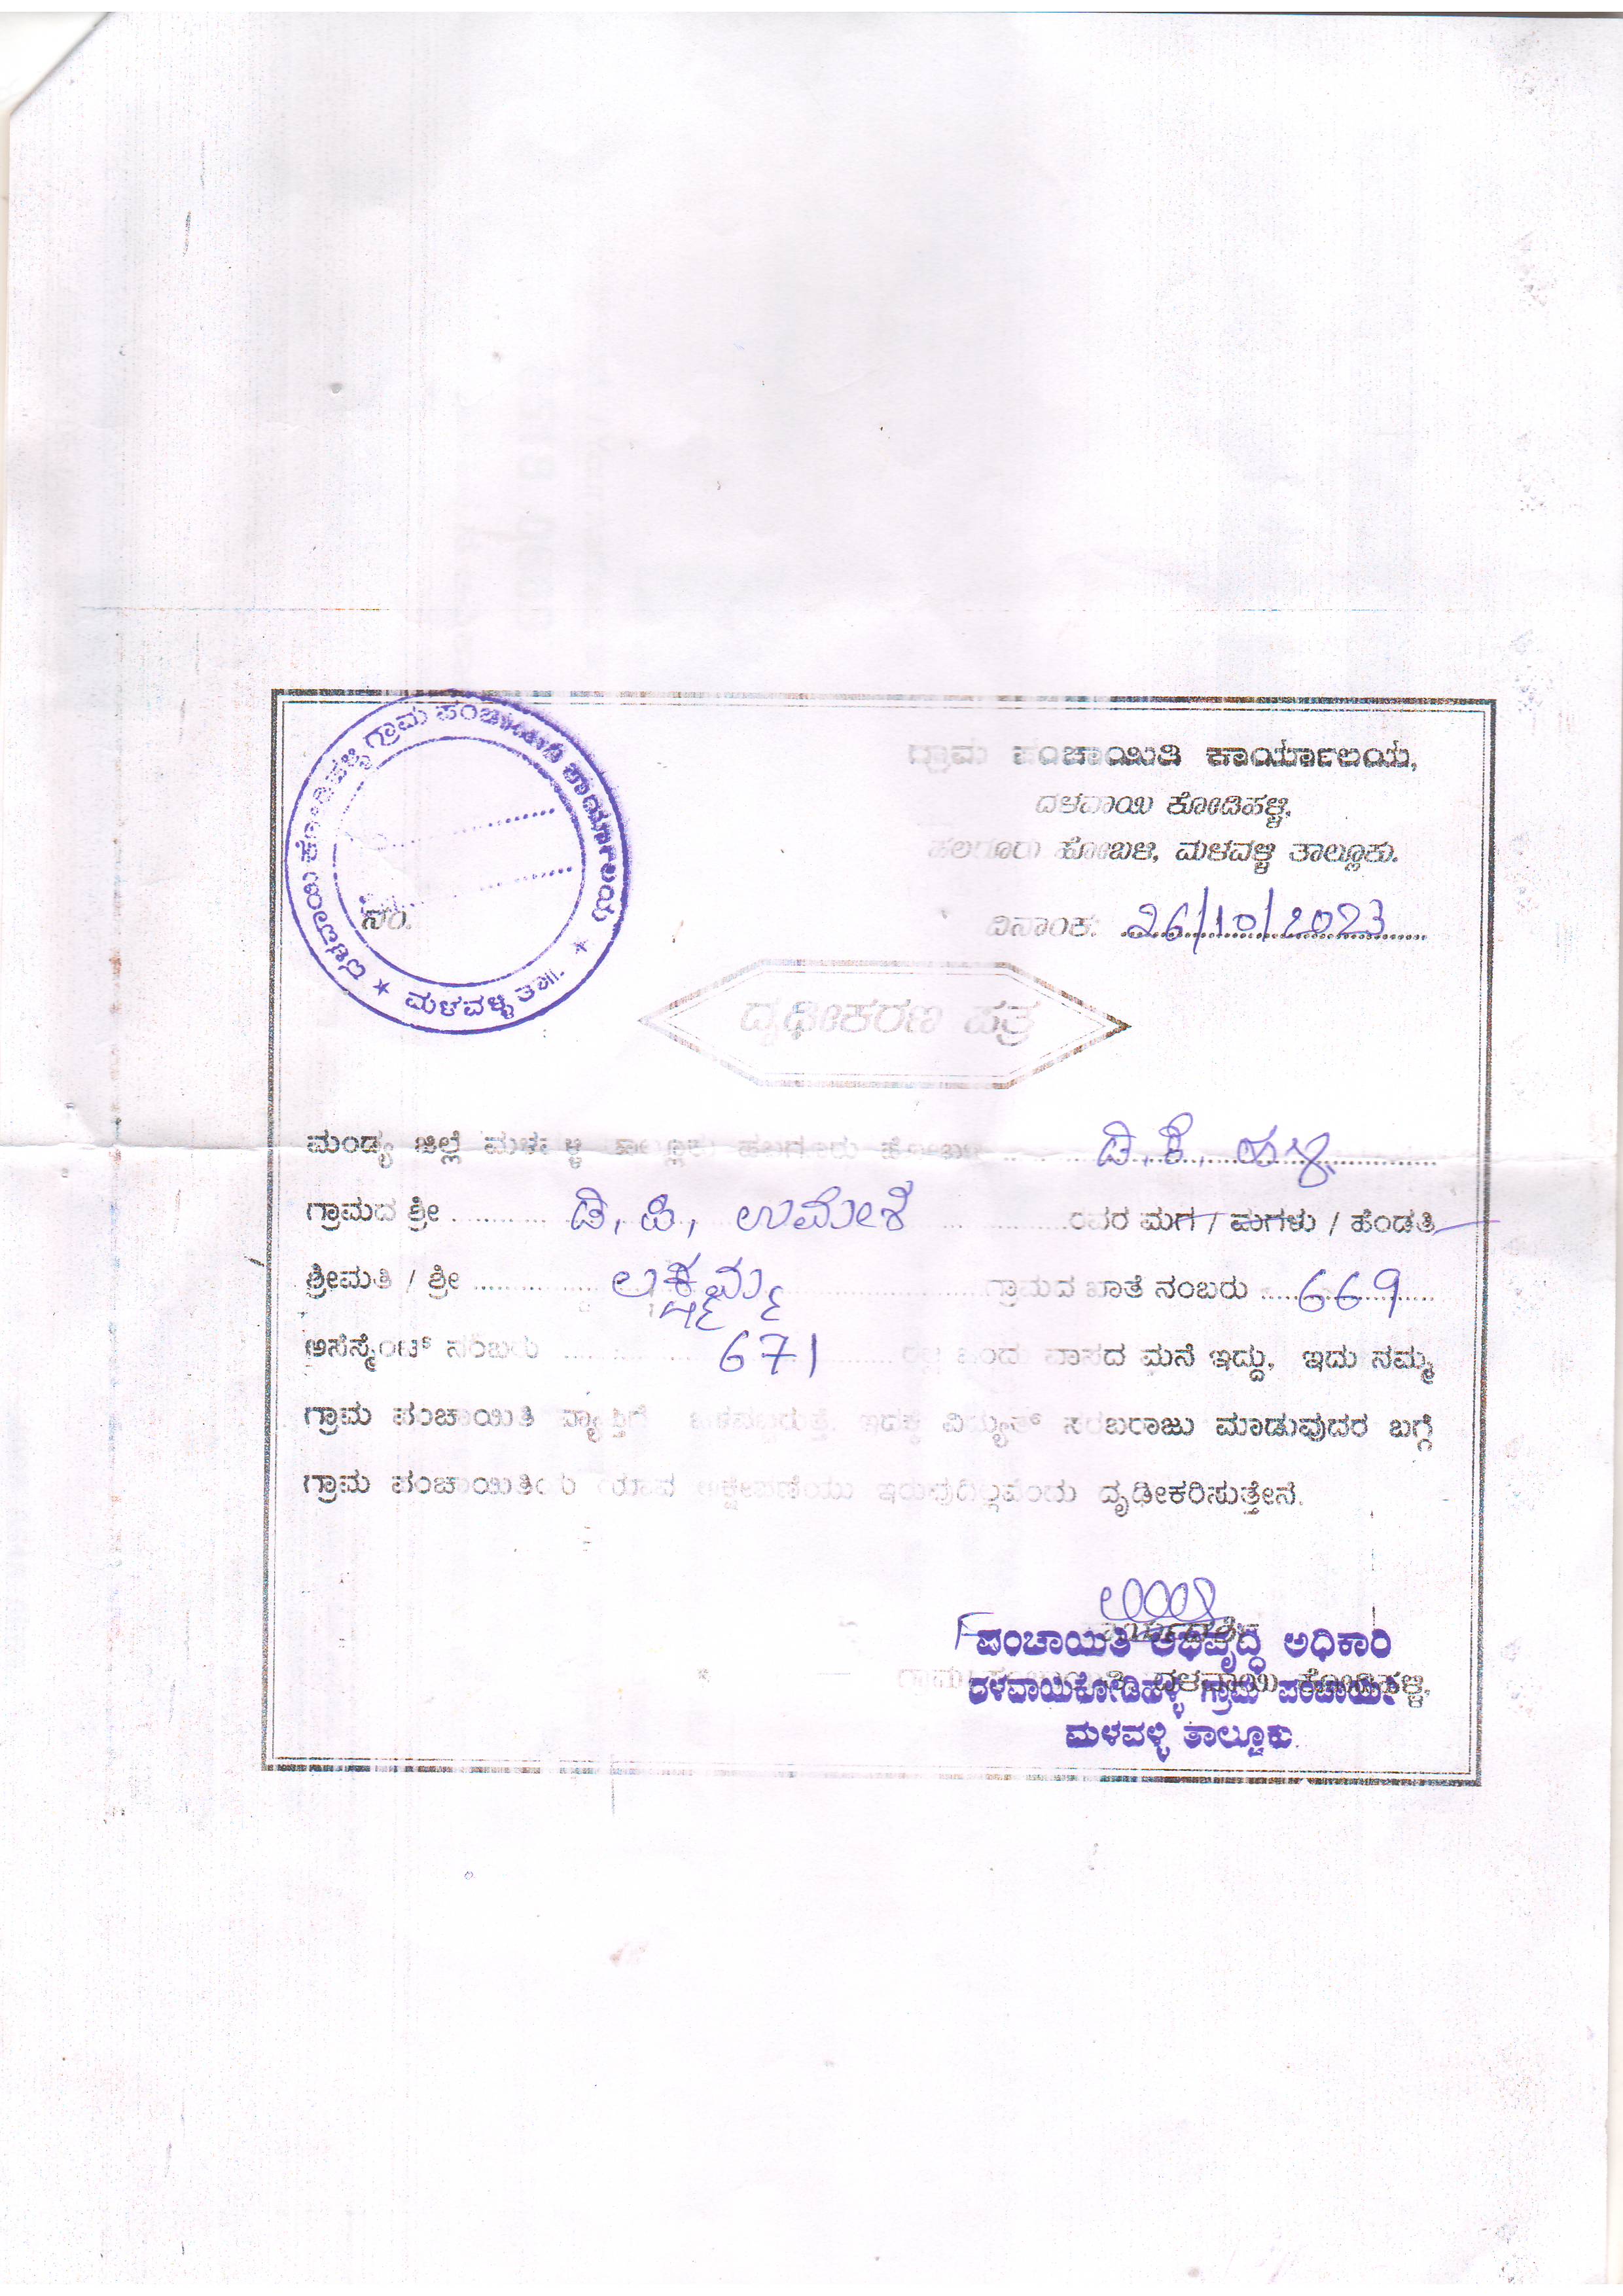 ದಳವಾಯಿ ಕೋಡಿಹಳ್ಳಿ ಗ್ರಾಮ ಪಂಚಾಯಿತಿ ಕಾರ್ಯಾಲಯ
★ ಮಳವಳ್ಳಿ ತಾ॥. ★
ಗ್ರಾಮ ಪಂಚಾಯಿತಿ ಕಾರ್ಯಾಲಯ,
ದಳವಾಯಿ ಕೋಡಿಹಳ್ಳಿ,
ಹಲಗೂರು ಹೋಬಳಿ, ಮಳವಳ್ಳಿ ತಾಲ್ಲೂಕು.
ನಂ. ದಿನಾಂಕ: 26/10/2023
ದೃಢೀಕರಣ ಪತ್ರ
ಮಂಡ್ಯ ಜಿಲ್ಲೆ ಮಳವಳ್ಳಿ ತಾಲ್ಲೂಕು ಹಲಗೂರು ಹೋಬಳಿ ಡಿ.ಕೆ. ಹಳ್ಳಿ
ಗ್ರಾಮದ ಶ್ರೀ ಡಿ, ಪಿ, ಉಮೇಶ ರವರ ಮಗ / ಮಗಳು / ಹೆಂಡತಿ
ಶ್ರೀಮತಿ / ಶ್ರೀ ಲಕ್ಷ್ಮಮ್ಮ ಗ್ರಾಮದ ಖಾತೆ ನಂಬರು 669
ಅಸೆಸ್ಮೆಂಟ್ ನಂಬರು 671 ಒಂದು ವಾಸದ ಮನೆ ಇದ್ದು, ಇದು ನಮ್ಮ
ಗ್ರಾಮ ಪಂಚಾಯಿತಿ ವ್ಯಾಪ್ತಿಗೆ ಒಳಪಟ್ಟಿರುತ್ತೆ. ಇದಕ್ಕೆ ವಿದ್ಯುತ್ ಸರಬರಾಜು ಮಾಡುವುದರ ಬಗ್ಗೆ
ಗ್ರಾಮ ಪಂಚಾಯಿತಿಯ ಯಾವ ಆಕ್ಷೇಪಣೆಯು ಇರುವುದಿಲ್ಲವೆಂದು ದೃಢೀಕರಿಸುತ್ತೇನೆ.
ಪಂಚಾಯಿತಿ ಅಭಿವೃದ್ಧಿ ಅಧಿಕಾರಿ
ಗ್ರಾಮ ಪಂಚಾಯಿತಿ, ದಳವಾಯಿ ಕೋಡಿಹಳ್ಳಿ,
ದಳವಾಯಿಕೋಡಿಹಳ್ಳಿ ಗ್ರಾಮ ಪಂಚಾಯಿತಿ
ಮಳವಳ್ಳಿ ತಾಲ್ಲೂಕು.